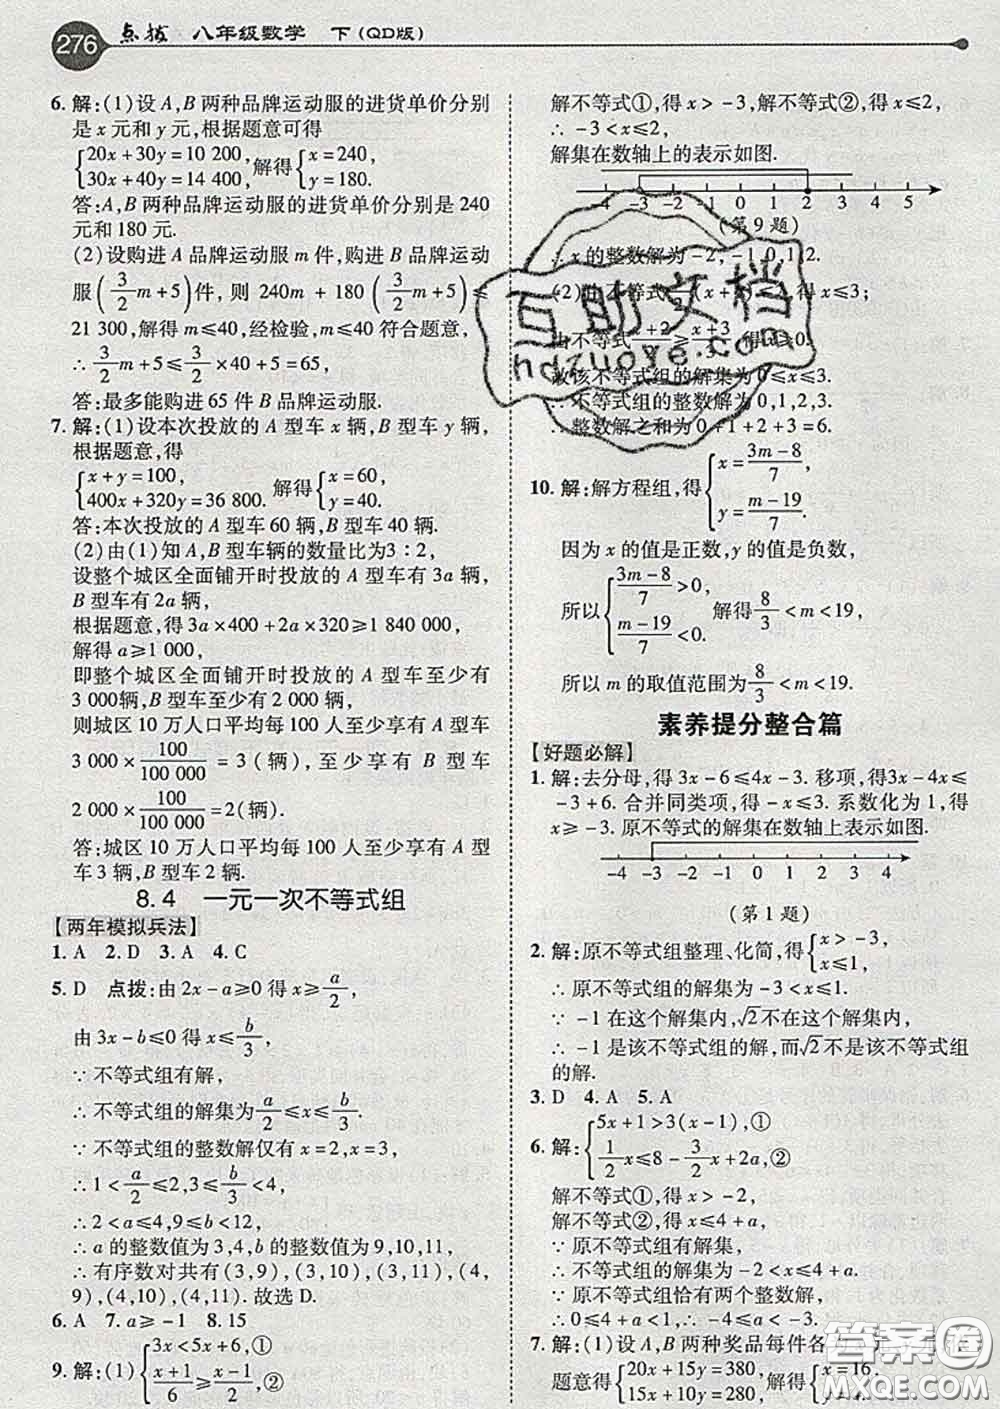 276 点拨 八年级数学 下(QD版)
6. 解:(1)设A,B两种品牌运动服的进货单价分别
是x元和y元,根据题意可得
{20x+30y=10 200, 30x+40y=14 400, 解得{x=240, y=180.
答:A,B两种品牌运动服的进货单价分别是240
元和180元.
(2)设购进A品牌运动服m件,购进B品牌运动
服(3/2m+5)件,则240m+180(3/2m+5)≤
21 300,解得m≤40,经检验,m=40符合题意,
∴3/2m+5≤3/2×40+5=65,
答:最多能购进65件B品牌运动服.
7. 解:(1)设本次投放的A型车x辆,B型车y辆,
根据题意,得
{x+y=100, 400x+320y=36 800. 解得{x=60, y=40.
答:本次投放的A型车60辆,B型车40辆.
(2)由(1)知A,B型车辆的数量比为3∶2,
设整个城区全面铺开时投放的A型车有3a辆,
B型车有2a辆,
根据题意,得3a×400+2a×320≥1 840 000,
解得a≥1 000,
即整个城区全面铺开时投放的A型车至少有
3 000辆,B型车至少有2 000辆,
则城区10万人口平均每100人至少享有A型车
3 000×100/100 000=3(辆),至少享有B型车
2 000×100/100 000=2(辆).
答:城区10万人口平均每100人至少享有A型
车3辆,B型车2辆.
8.4 一元一次不等式组
【两年模拟兵法】
1. A 2. D 3. A 4. C
5. D 点拨:由2x-a≥0得x≥a/2,
由3x-b≤0得x≤b/3,
∵不等式组有解,
∴不等式组的解集为a/2≤x≤b/3.
∵不等式组的整数解仅有x=2,x=3,
∴1<a/2≤2,3≤b/3<4,
∴2<a≤4,9≤b<12,
∴a的整数值为3,4,b的整数值为9,10,11,
∴有序数对共有(3,9),(3,10),(3,11),(4,
9),(4,10),(4,11).故选D.
6. A 7. a≥-1 8. 15
9. 解:(1){3x<5x+6,① (x+1)/6≥(x-1)/2,②
解不等式①,得x>-3,解不等式②,得x≤2,
∴-3<x≤2,
解集在数轴上的表示如图.
-4 -3 -2 -1 0 1 2 3 4 5
(第9题)
∴x的整数解为-2,-1,0,1,2.
得x≤3;
由不等式
故该不等式组的解集为0≤x≤3.
∴不等式组的整数解为0,1,2,3.
∴整数解之和为0+1+2+3=6.
10. 解:解方程组,得{x=(3m-8)/7, y=(m-19)/7.
因为x的值是正数,y的值是负数,
所以{(3m-8)/7>0, (m-19)/7<0. 解得8/3<m<19,
所以m的取值范围为8/3<m<19.
素养提分整合篇
【好题必解】
1. 解:去分母,得3x-6≤4x-3.移项,得3x-4x≤
-3+6.合并同类项,得-x≤3.系数化为1,得
x≥-3.原不等式的解集在数轴上表示如图.
-4 -3 -2 -1 0 1 2 3 4
(第1题)
2. 解:原不等式组整理、化简,得{x>-3, x≤1,
∴原不等式组的解集为-3<x≤1.
∵-1在这个解集内,√2不在这个解集内,
∴-1是该不等式组的解,而√2不是该不等式组
的解.
3. D 4. A 5. A
6. 解:{5x+1>3(x-1),① 1/2x≤8-3/2x+2a,②
解不等式①,得x>-2,
解不等式②,得x≤4+a,
∵原不等式组有解集,
∴原不等式组的解集为-2<x≤4+a.
∵原不等式组恰有两个整数解,
∴0≤4+a<1,∴-4≤a<-3.
7. 解:(1)设A,B两种奖品每件各
题意得{20x+15y=380, 15x+10y=280, 解得{x=16, y=4.
互助文档
hdzuoye.com
答案圈
MXQE.COM